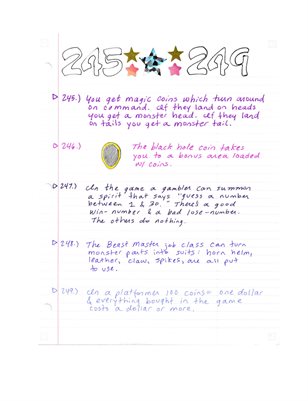 245 249
245.) You get magic coins which turn around
on command. If they land on heads
you get a monster head. If they land
on tails you get a monster tail.
246.) The black hole coin takes
you to a bonus area loaded
w/ coins.
247.) In the game a gambler can summon
a spirit that says "guess a number
between 1 & 30." There's a good
win-number & a bad lose-number.
The others do nothing.
248.) The Beast master job class can turn
monster parts into suits: horn helm,
leather, claw, spikes, are all put
to use.
249.) In a platformer 100 coins = one dollar
& everything bought in the game
costs a dollar or more.